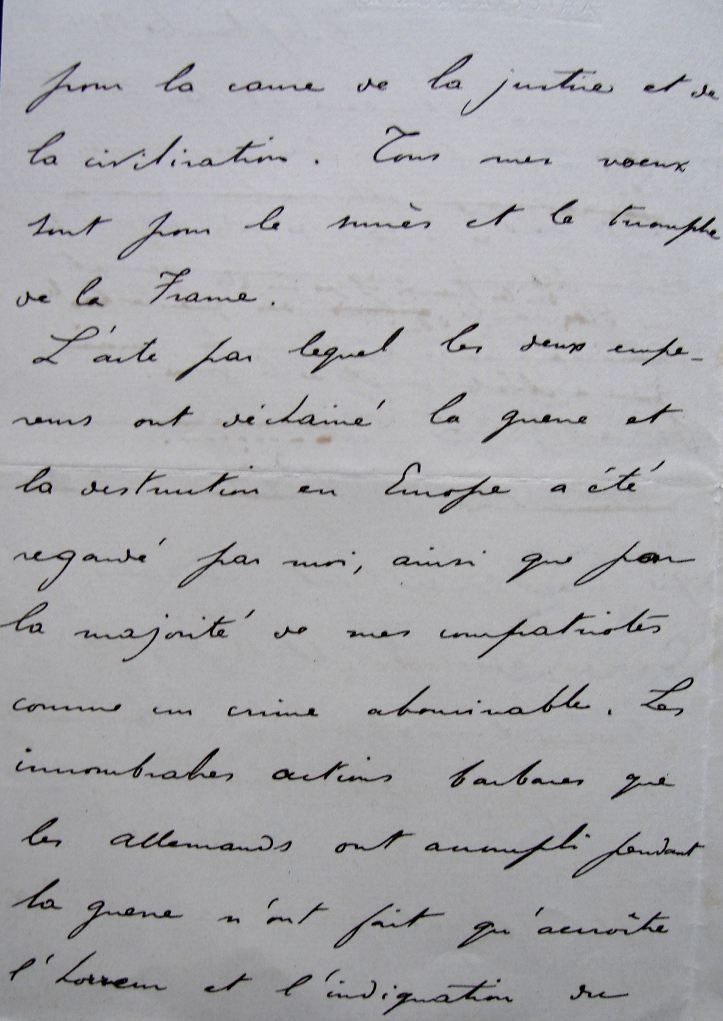 pour la cause de la justice et de
la civilisation. Tous mes voeux
sont pour le succès et le triomphe
de la France.
L'acte par lequel les deux empe-
reurs ont déchainé la guerre et
la destruction en Europe a été
regardé par moi, ainsi que par
la majorité de mes compatriotes
comme un crime abominable. Les
innombrables actions barbares que
les allemands ont accompli pendant
la guerre n'ont fait qu'accroître
l'horreur et l'indignation du